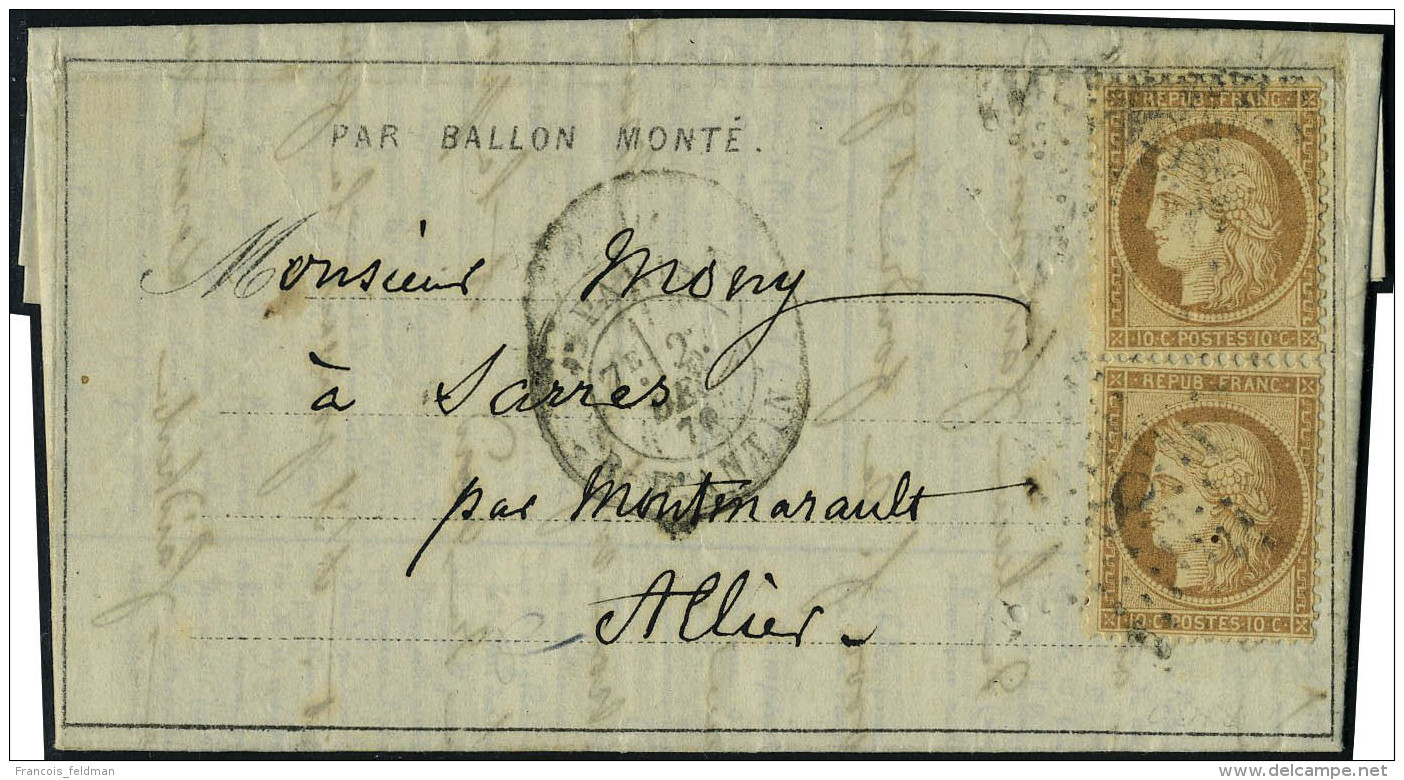 PAR BALLON MONTÉ.
REPUB · FRANC
10 · C · POSTES · 10 · C
REPUB · FRANC
10 · C · POSTES · 10 · C
Monsieur Mony
à Sarres
par Montmarault
Allier
7E
2
DEC
70
Francois_feldman
delcampe.net